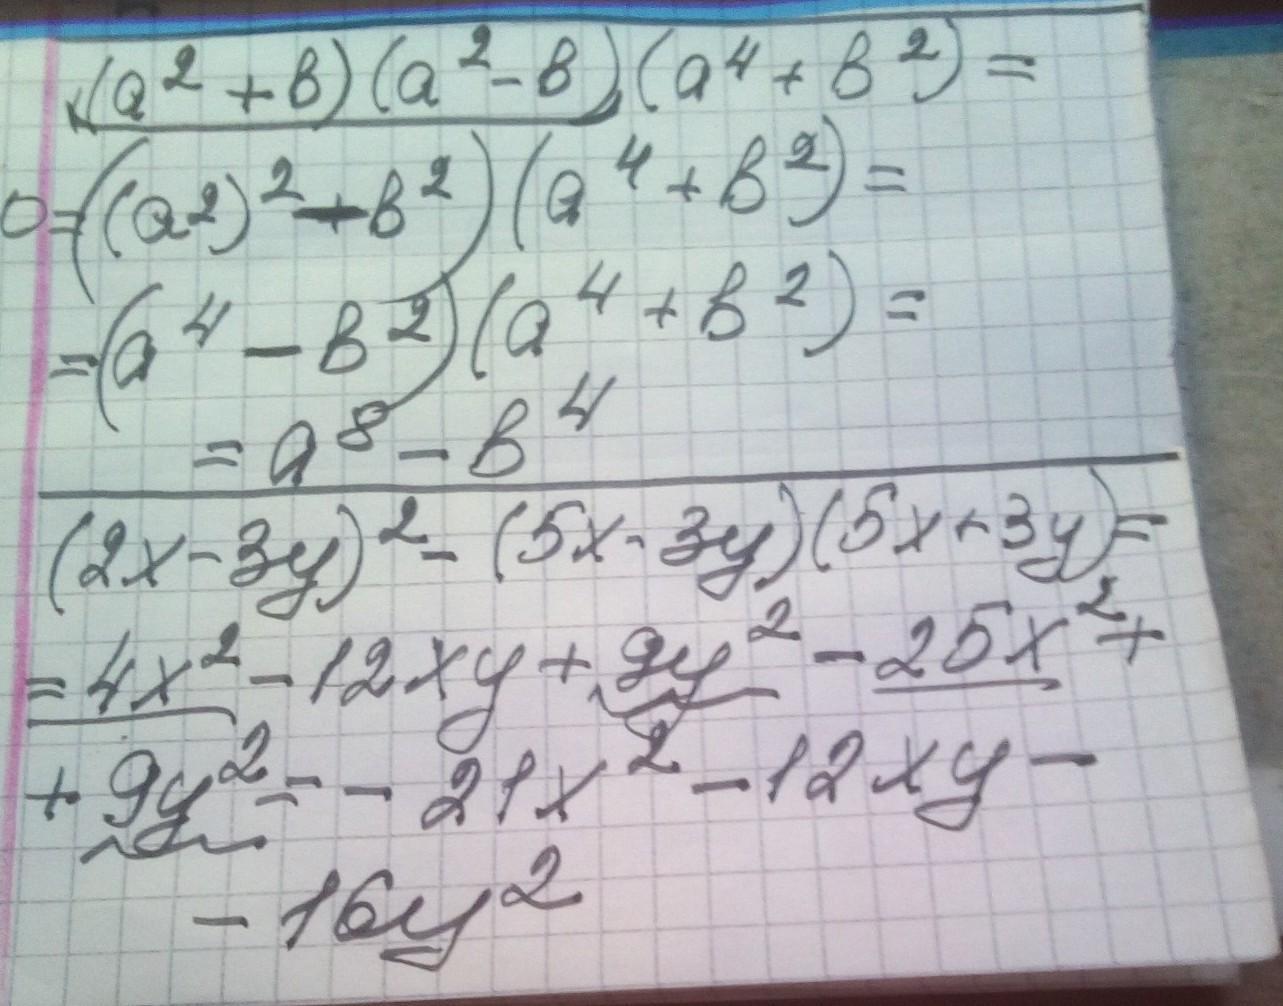 (a² + b)(a² - b)(a⁴ + b²) =
= ((a²)² - b²)(a⁴ + b²) =
= (a⁴ - b²)(a⁴ + b²) =
= a⁸ - b⁴
(2x - 3y)² - (5x - 3y)(5x + 3y) =
= 4x² - 12xy + 9y² - 25x² +
+ 9y² = - 21x² - 12xy -
- 16y²